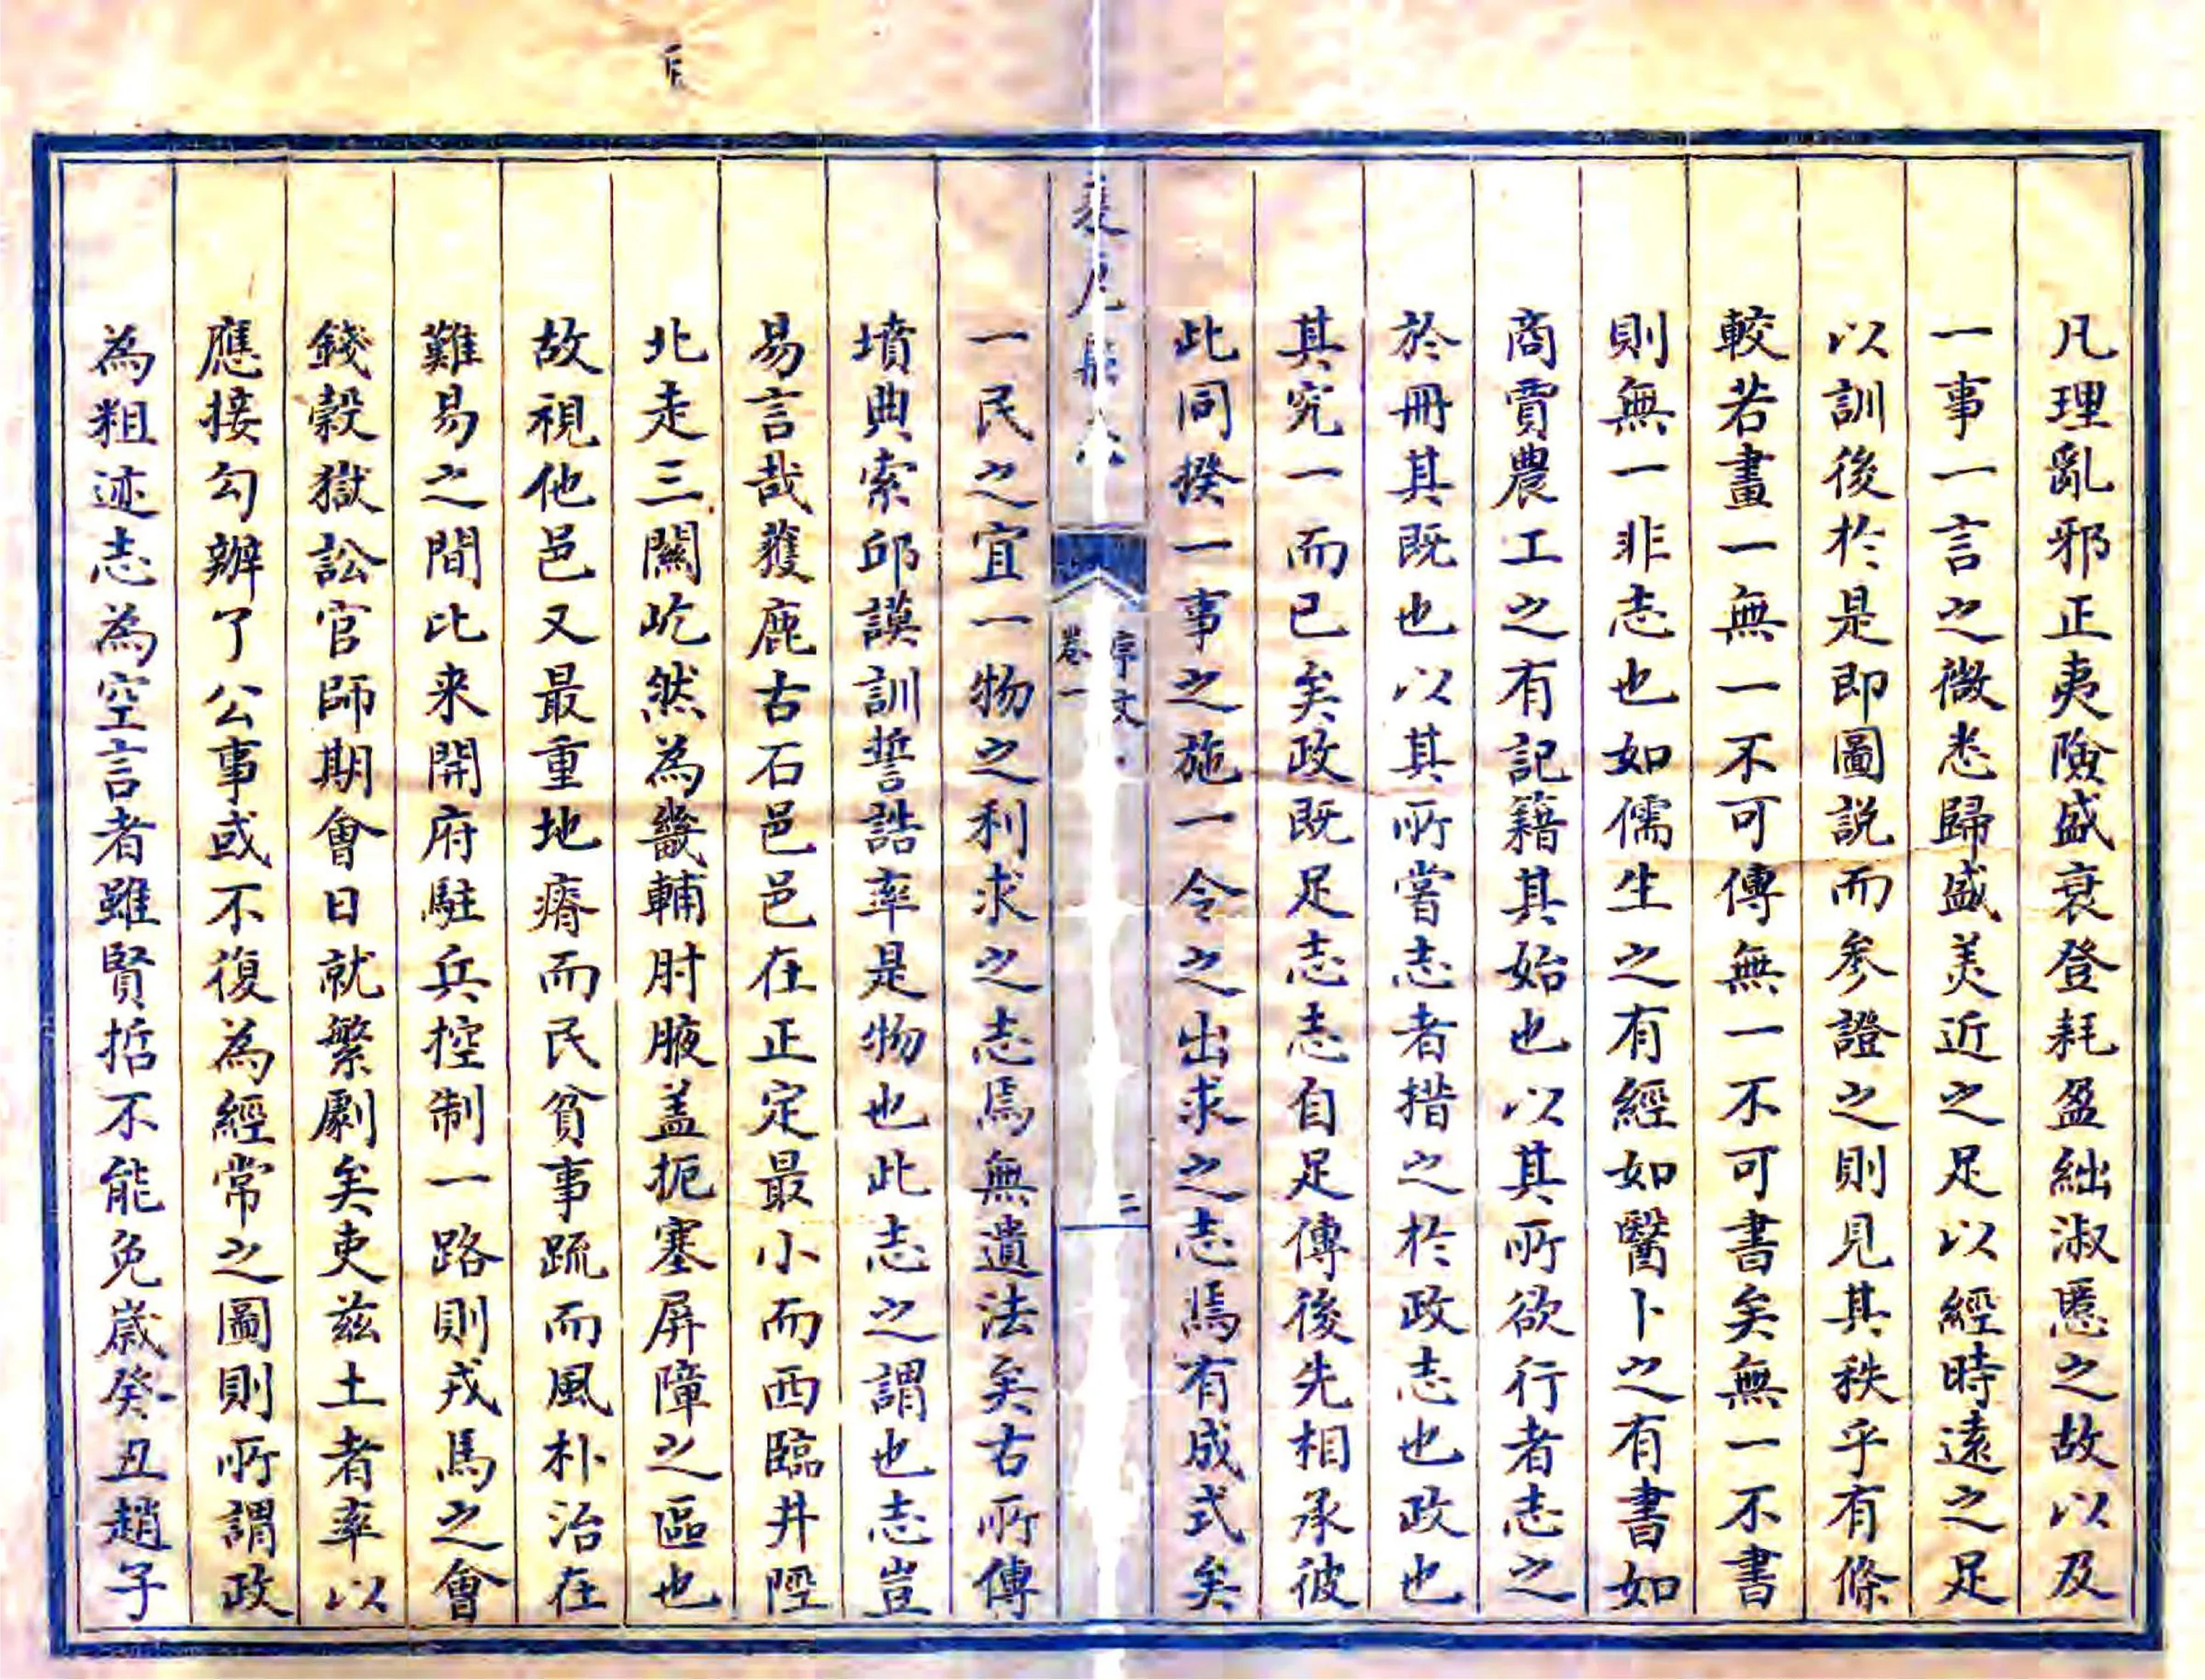 凡理亂邪正夷險盛衰登耗盈絀淑慝之故以及
一事一言之微悉歸盛美近之足以經時遠之足
以訓後於是即圖説而參證之則見其秩乎有條
較若畫一無一不可傳無一不可書矣無一不書
則無一非志也如儒生之有經如醫卜之有書如
商賈農工之有記籍其始也以其所欲行者志之
於冊其既也以其所嘗志者措之於政志也政也
其究一而已矣政既足志志自足傳後先相承彼
此同揆一事之施一令之出求之志焉有成式矣
序文
卷一
二
一民之宜一物之利求之志焉無遺法矣古所傳
墳典索邱謨訓誓誥率是物也此志之謂也志豈
易言哉獲鹿古石邑邑在正定最小而西臨井陘
北走三關屹然為畿輔肘腋盖扼塞屏障之區也
故視他邑又最重地瘠而民貧事踈而風朴治在
難易之間比来開府駐兵控制一路則戎馬之會
錢穀獄訟官師期會日就繁劇矣吏茲土者率以
應接勾辦了公事或不復為經常之圖則所謂政
為粗迹志為空言者雖賢哲不能免嵗癸丑趙子